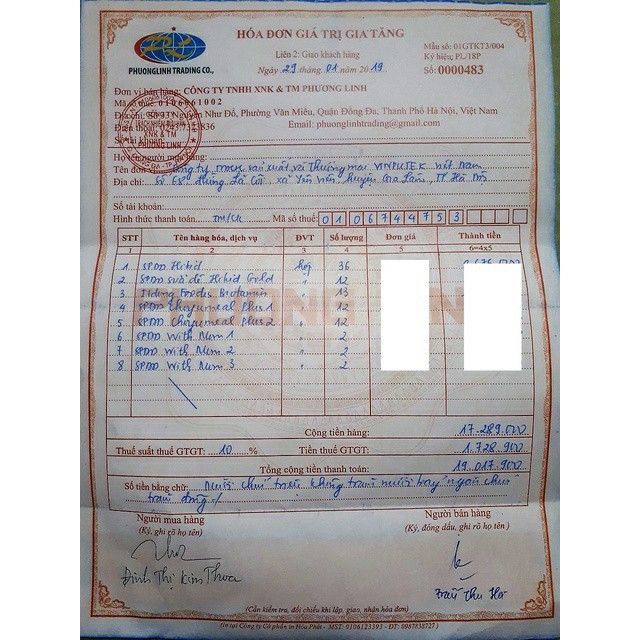 HÓA ĐƠN GIÁ TRỊ GIA TĂNG
Mẫu số: 01GTKT3/004
Liên 2: Giao khách hàng
Ký hiệu: PL/18P
PHUONGLINH TRADING CO.,
Ngày 29 tháng 01 năm 2019
Số: 0000483
Đơn vị bán hàng: CÔNG TY TNHH XNK & TM PHƯƠNG LINH
Mã số thuế: 0106861002
Địa chỉ: Số 93 Nguyễn Như Đổ, Phường Văn Miếu, Quận Đống Đa, Thành Phố Hà Nội, Việt Nam
Điện thoại: Email: phuonglinhtrading@gmail.com
Số tài khoản:
XNK & TM
PHƯƠNG LINH
Họ tên người mua hàng:
Tên đơn vị: Công ty TNHH sản xuất và thương mại VINPUTEK Việt Nam
Địa chỉ: Số 68 đường xã Yên Viên, huyện Gia Lâm, TP. Hà Nội
Số tài khoản:
Hình thức thanh toán: TM/CK Mã số thuế: 0106744753
STT Tên hàng hóa, dịch vụ ĐVT Số lượng Đơn giá Thành tiền
1 2 3 4 5 6=4x5
1 SPDD Hikid hộp 36
2 SPDD sữa dê Hikid Gold 12
3 Ildong Foodis 13
4 SPDD Plus 1 12
5 SPDD Plus 2 12
6 SPDD With Mum 1 2
7 SPDD With Mum 2 2
8 SPDD With Mum 3 2
Cộng tiền hàng: 17.289.000
Thuế suất thuế GTGT: 10 % Tiền thuế GTGT: 1.728.900
Tổng cộng tiền thanh toán: 19.017.900
Số tiền bằng chữ: Mười chín triệu không trăm mười bảy ngàn chín
trăm đồng /
Người mua hàng Người bán hàng
(Ký, ghi rõ họ tên) (Ký, đóng dấu, ghi rõ họ tên)
Đinh Thị Kim Thoa
Trần Thu Hà
(Cần kiểm tra, đối chiếu khi lập, giao, nhận hóa đơn)
(In tại Công ty Cổ phần in Hòa Phát - MST: 0106123393 - ĐT: 0987838727)